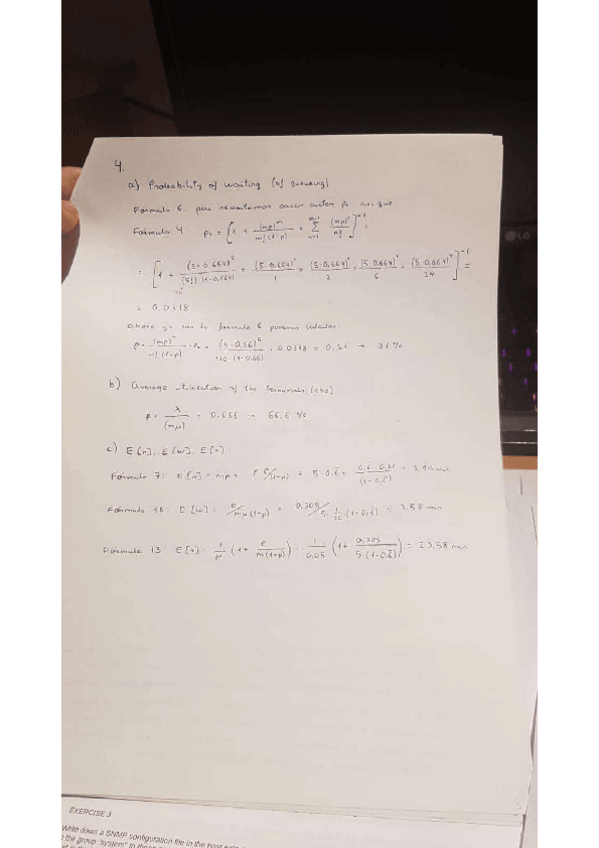 4.
a) Probability of waiting (of queueing)
Formula 6. pero necesitamos sacar antes p₀. así que
Formula 4 p₀ = [1 + (mp)^m / m!(1-p) + Σ (mp)^n / n!]^-1 =
= [1 + (5·0,664)^5 / (5!)(1-0,664) + (5·0,664)^1 / 1 + (5·0,664)^2 / 2 + (5·0,664)^3 / 6 + (5·0,664)^4 / 24]^-1 =
= 0,0318
ahora ya con la formula 6 podemos calcular
p = (mp)^n / n!(1-p) · p₀ = (5·0,66)^5 / 120·(1-0,66) · 0,0318 = 0,31 → 31%
b) Average utilization of the terminals (rho)
ρ = λ / (mμ) = 66,6 %
c) E[n], E[w], E[s]
Formula 7: E[n] = mp + P ρ/(1-p) = 3,9
Formula 16: E[w] = P / mμ(1-p) = 0,305 / 5·1/20·(1-0,6) = 3,58 min
Formula 13: E[s] = 1/μ (1 + P / m(1-p)) = 1 / 0,05 (1 + 0,305 / 5·(1-0,6)) = 23,58 min
LG
EXERCISE 3
Write down a SNMP configuration file in the host
the group "system" to